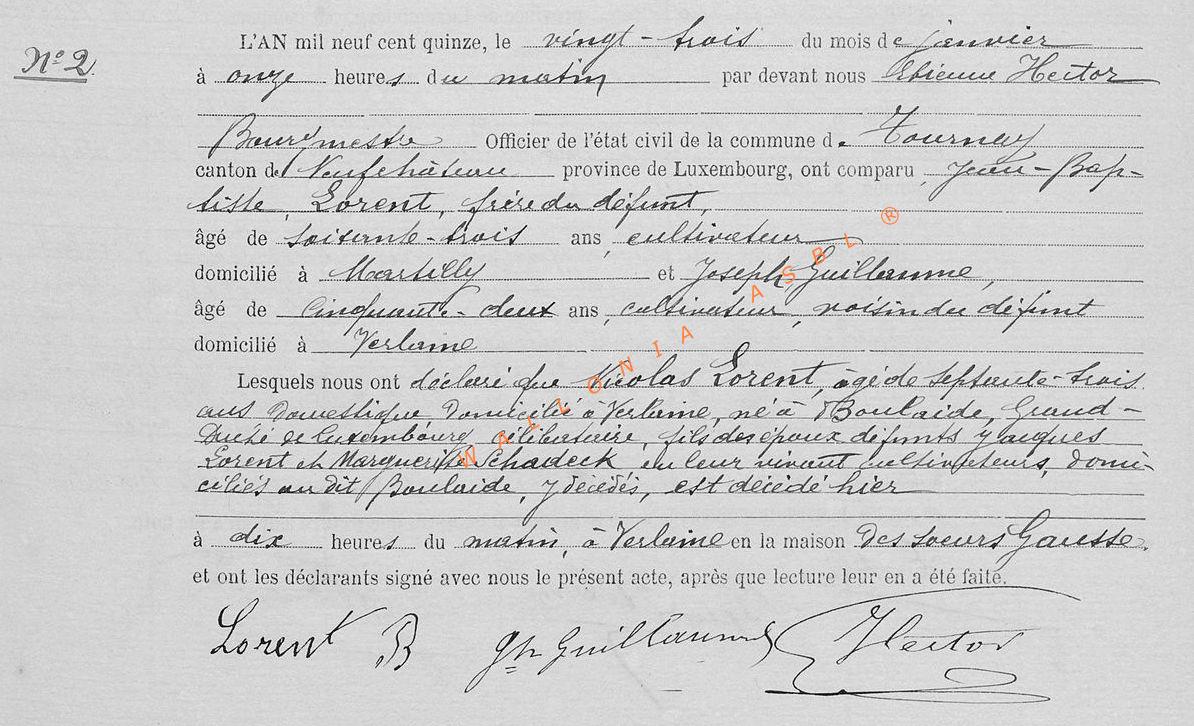 N° 2
L'AN mil neuf cent quinze, le vingt-trois du mois de janvier
à onze heures du matin par devant nous Etienne Hector
Bourgmestre Officier de l'état civil de la commune de Tournay
canton de Neufchâteau province de Luxembourg, ont comparu Jean-Bap-
tiste, Lorent, frère du défunt,
âgé de soixante-trois ans, cultivateur
domicilié à Martilly et Joseph Guillaume,
âgé de cinquante-deux ans, cultivateur, voisin du défunt
domicilié à Verlaine
Lesquels nous ont déclaré que Nicolas Lorent, âgé de septante-trois
ans domestique, domicilié à Verlaine, né à Boulaide, Grand-
Duché de Luxembourg, célibataire, fils des époux défunts Jacques
Lorent et Marguerite Schadeck, en leur vivant cultivateurs, domi-
ciliés au dit Boulaide, y décédés, est décédé hier
à dix heures du matin, à Verlaine en la maison des soeurs Gousse.
et ont les déclarants signé avec nous le présent acte, après que lecture leur en a été faite.
Lorent B Jph Guillaume Hector
WALLONIA ASBL ®